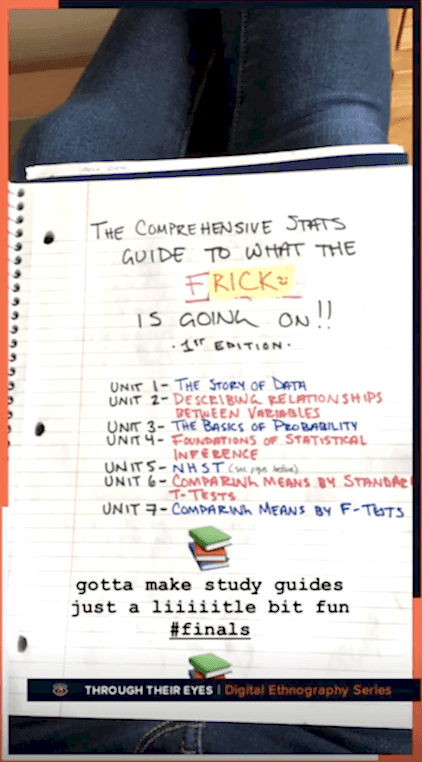 THE COMPREHENSIVE STATS
GUIDE TO WHAT THE
FRICK
IS GOING ON!!
· 1ST EDITION ·
UNIT 1- THE STORY OF DATA
UNIT 2- DESCRIBING RELATIONSHIPS
BETWEEN VARIABLES
UNIT 3- THE BASICS OF PROBABILITY
UNIT 4- FOUNDATIONS OF STATISTICAL
INFERENCE
UNIT 5- NHST (see pgs. before)
UNIT 6- COMPARING MEANS BY STANDAR
T-TESTS
UNIT 7- COMPARING MEANS BY F-TESTS
gotta make study guides
just a liiiiitle bit fun
#finals
THROUGH THEIR EYES | Digital Ethnography Series